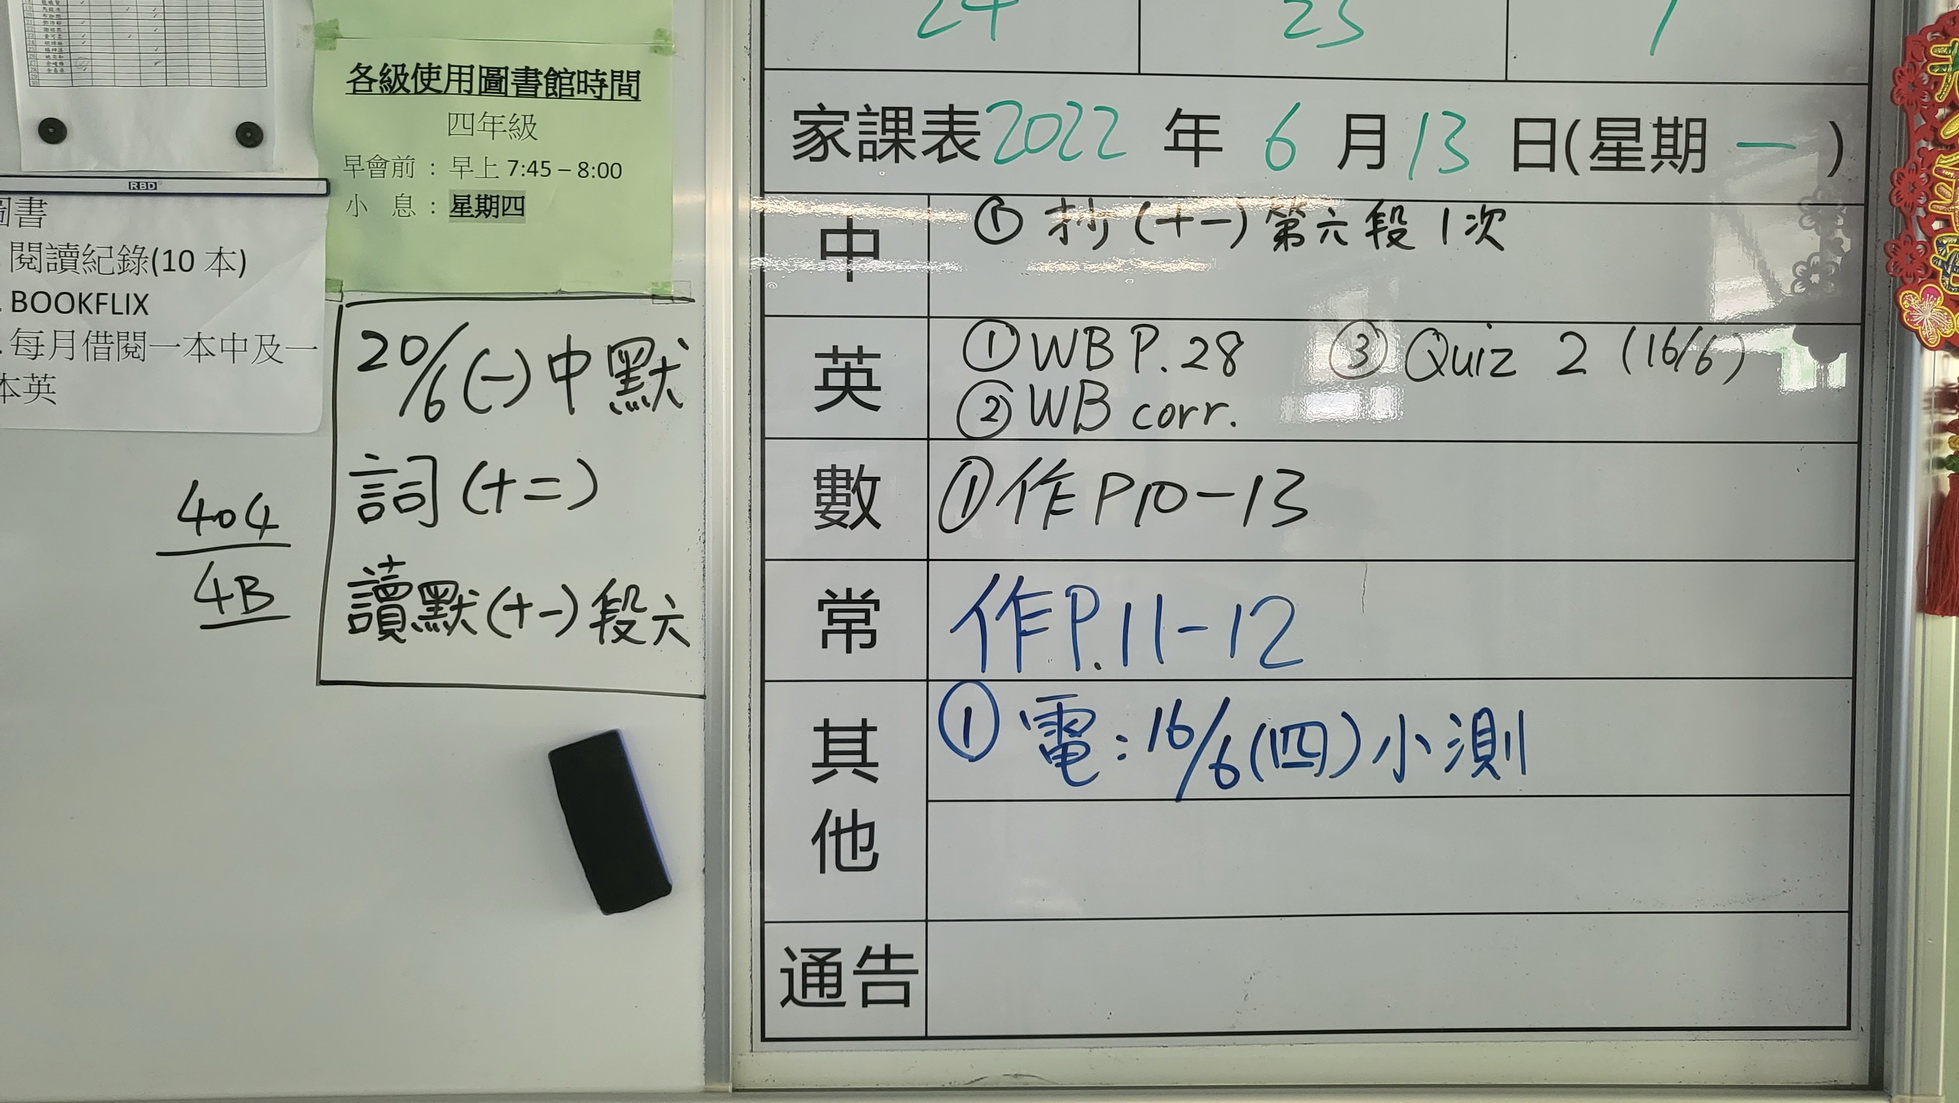 各級使用圖書館時間
四年級
早會前：早上 7:45 – 8:00
小 息：星期四
RBD
圖書
閱讀紀錄(10 本)
. BOOKFLIX
. 每月借閱一本中及一
本英
20/6 (一) 中默
詞 (十二)
讀默 (十一) 段六
404
4B
24 23 1
家課表 2022 年 6 月 13 日(星期 一 )
中
① 抄 (十一) 第六段 1次
英
① WB P.28 ③ Quiz 2 (16/6)
② WB corr.
數
① 作 P10-13
常
作P.11-12
其他
① 電：16/6 (四) 小測
通告